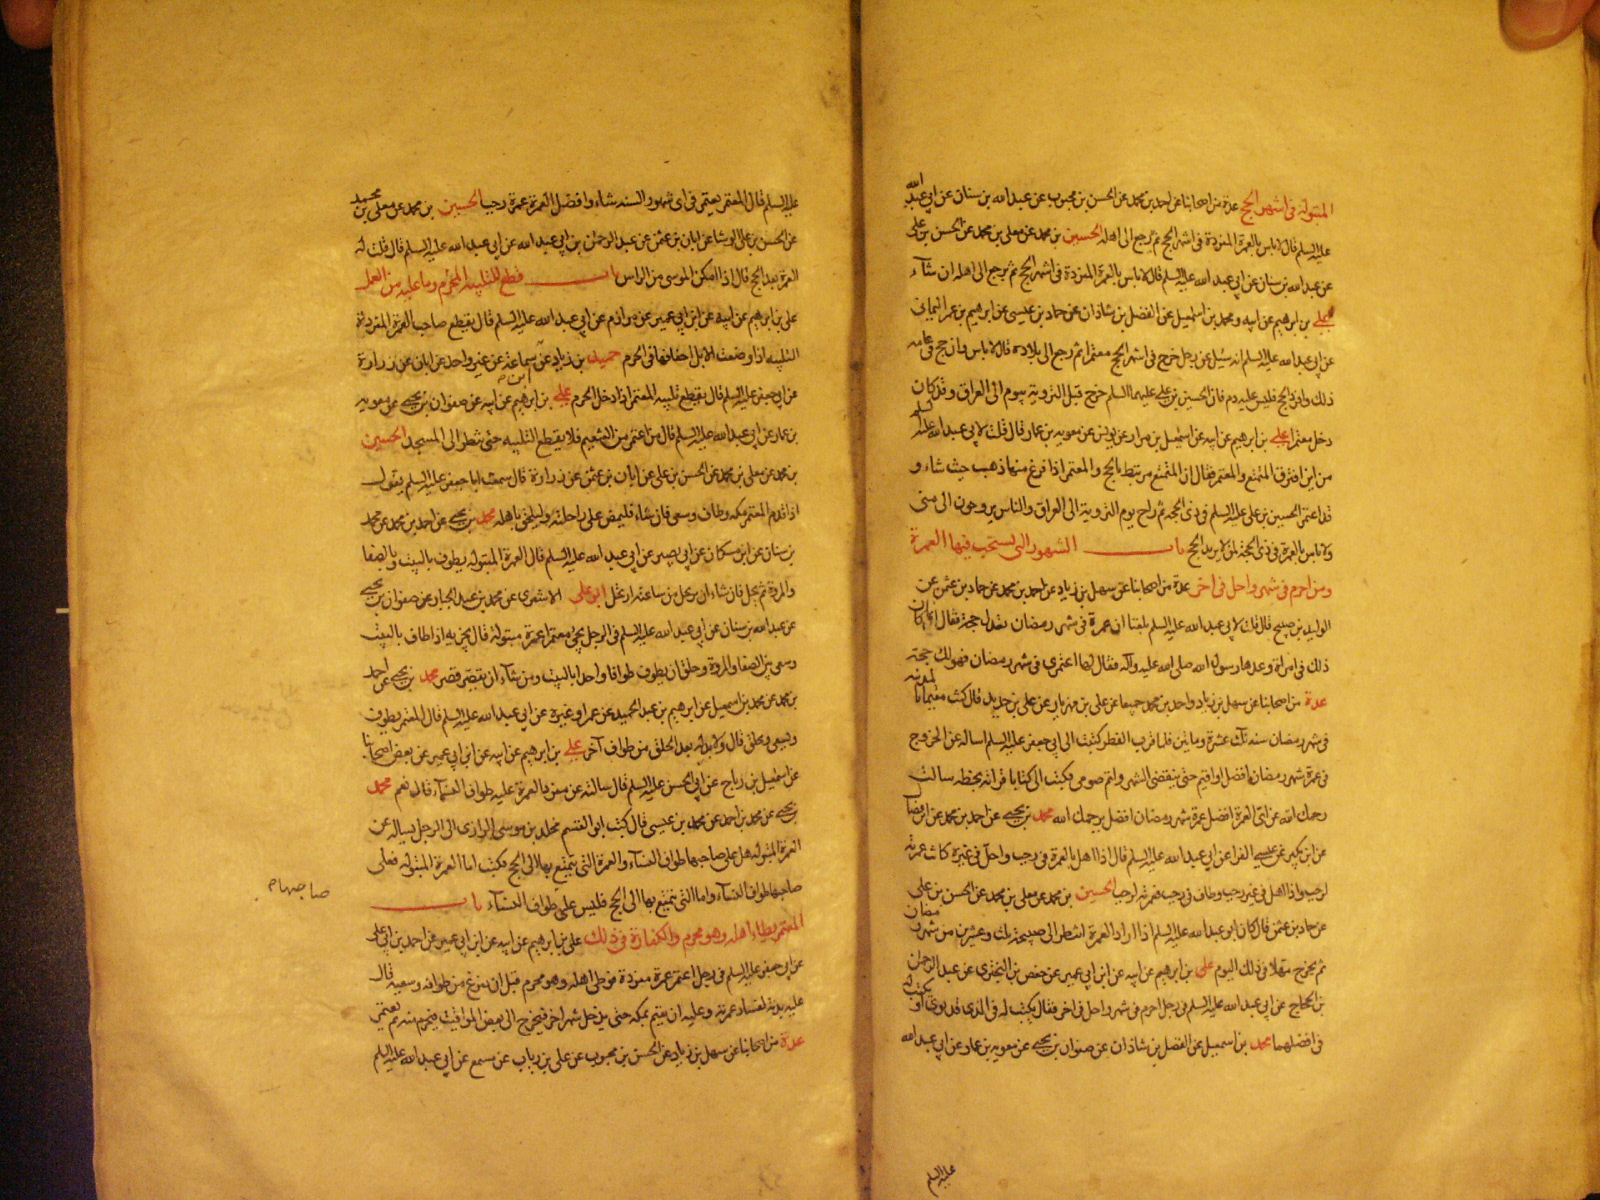 المبتولة فى اشهر الحج عدة من اصحابنا عن احمد بن محمد عن الحسن بن محبوب عن عبدالله بن سنان عن ابى عبدالله
عليه السلم قال لاباس بالعمرة المفردة فى اشهر الحج ثم يرجع الى اهله الحسين بن محمد عن معلى بن محمد عن الحسن بن على
عن عبدالله بن سنان عن ابى عبدالله عليه السلم قال لاباس بالعمرة المفردة فى اشهر الحج ثم يرجع الى اهله ان شآء
على بن ابرهيم عن ابيه ومحمد بن اسمعيل عن الفضل بن شاذان عن حماد بن عيسى عن ابرهيم بن عمر اليمانى
عن ابى عبدالله عليه السلم انه سئل عن رجل خرج فى اشهر الحج معتمرا ثم رجع الى بلاده قال لاباس وان حج فى عامه
ذلك وافرد الحج فليس عليه دم فان الحسين بن على عليهما السلم خرج قبل التروية بيوم الى العراق وقد كان
دخل معتمرا على بن ابرهيم عن ابيه عن اسمعيل بن مرار عن يونس عن معوية بن عمار قال قلت لابى عبدالله عليه السلم
من اين افترق المتمتع والمعتمر فقال ان المتمتع مرتبط بالحج والمعتمر اذا فرغ منها ذهب حيث شاء و
قد اعتمر الحسين بن على عليه السلم فى ذى الحجة ثم راح يوم التروية الى العراق والناس يروحون الى منى
ولا باس بالعمرة فى ذى الحجة لمن لا يريد الحج باب الشهور التى يستحب فيها العمرة
ومن احرم فى شهر واحل فى اخر عدة من اصحابنا عن سهل بن زياد عن احمد بن محمد عن حماد بن عثمن عن
الوليد بن صبيح قال قلت لابى عبدالله عليه السلم بلغنا ان عمرة فى شهر رمضان تعدل حجة فقال انما كان
ذلك فى امراة وعدها رسول الله صلى الله عليه وآله فقال لها اعتمرى فى شهر رمضان فهو لك حجة
عدة من اصحابنا عن سهل بن زياد واحمد بن محمد جميعا عن على بن مهزيار عن على بن حديد قال كنت مقيما بالمدينة
فى شهر رمضان سنه ثلث عشرة ومايتن فلما قرب الفطر كتبت الى ابى جعفر عليه السلم اساله عن الخروج
فى عمرة شهر رمضان افضل او اقيم حتى ينقضى الشهر واتم صومى فكتب الى كتابا قراته بخطه سالت
رحمك الله عن اى العمرة افضل عمرة شهر رمضان افضل يرحمك الله محمد بن يحيى عن احمد بن محمد عن ابن فضال
عن ابن بكير عن عيسى الفرا عن ابى عبدالله عليه السلم قال اذا اهل بالعمرة فى رجب واحل فى غيره كانت عمرته
لرجب واذا اهل فى غير رجب وطاف فى رجب فعمرته لرجب الحسين بن محمد عن معلى بن محمد عن الحسن بن على
عن حماد بن عثمن قال كان ابو عبدالله عليه السلم اذا اراد العمرة انتظر الى صبيحة ثلث وعشرين من شهر رمضان
ثم يخرج مهلا فى ذلك اليوم على بن ابرهيم عن ابيه عن ابن ابى عمير عن حفص بن البخترى عن عبد الرحمان
بن الحجاج عن ابى عبدالله عليه السلم فى رجل احرم فى شهر واحل فى اخر فقال يكتب له فى الذى قد نوى او يكتب له
فى افضلهما محمد بن اسمعيل عن الفضل بن شاذان عن صفوان بن يحيى عن معوية بن عمار عن ابى عبدالله
عليه السلم
عليه السلم قال المعتمر يعتمر فى اى شهور السنه شاء وافضل العمرة عمرة رجب الحسين بن محمد عن معلى بن محمد
عن الحسن بن على الوشا عن ابان بن عثمن عن عبد الرحمان بن ابى عبدالله عن ابى عبدالله عليه السلم قال قلت له
العمرة بعد الحج قال اذا امكن الموسى من الراس باب قطع التلبيه المحرم وما عليه من العمل
على بن ابرهيم عن ابيه عن ابن ابى عمير عن مرازم عن ابى عبدالله عليه السلم قال يقطع صاحب العمرة المفردة
التلبيه اذا وضعت الابل اخفافها فى الحرم حميد بن زياد عن ابن سماعة عن غير واحد عن ابان عن زرارة
عن ابى جعفر عليه السلم قال يقطع تلبيه المعتمر اذا دخل الحرم على بن ابرهيم عن ابيه عن صفوان بن يحيى عن معوية
بن عمار عن ابى عبدالله عليه السلم قال من اعتمر من التنعيم فلا يقطع التلبيه حتى ينظر الى المسجد الحسين
بن محمد عن معلى بن محمد عن الحسن بن على عن ابان بن عثمن عن زرارة قال سمعت ابا جعفر عليه السلم يقول
اذا قدم المعتمر مكه وطاف وسعى فان شاء فليمض على راحلته وليلحق باهله محمد بن يحيى عن احمد بن محمد عن محمد
بن سنان عن ابن مسكان عن ابى بصير عن ابى عبدالله عليه السلم قال العمرة المبتوله يطوف بالبيت وبالصفا
والمروة ثم يحل فان شاء ان يرتحل من ساعته ارتحل ابو على الاشعرى عن محمد بن عبد الجبار عن صفوان بن يحيى
عن عبدالله بن سنان عن ابى عبدالله عليه السلم فى الرجل يجئ معتمرا عمرة مبتولة قال يجزيه اذا طاف بالبيت
وسعى بين الصفا والمروة وحلق ان يطوف طوافا واحدا بالبيت ومن شآء ان يقصر قصر محمد بن يحيى عن احمد
بن محمد عن محمد بن اسمعيل عن ابرهيم بن عبد الحميد عن عمر او غيره عن ابى عبدالله عليه السلم قال المعتمر يطوف
ويسعى ويحلق قال ولا بد له بعد الحلق من طواف آخر على بن ابرهيم عن ابيه عن ابن ابى عمير عن بعض اصحابنا
عن اسمعيل بن رباح عن ابى الحسن عليه السلم قال سالته عن مفرد العمرة عليه طواف النسآء قال نعم محمد
بن يحيى عن محمد بن احمد عن محمد بن عيسى قال كتب ابو القسم مخلد بن موسى الرازى الى الرجل يساله عن
العمرة المبتوله هل على صاحبها طواف النسآء والعمرة التى يتمتع بها الى الحج فكتب اما العمرة المبتوله فعلى
صاحبها طواف النسآء واما التى يتمتع بها الى الحج فليس على طواف النسآء باب
صاحبها م
المعتمر يطاء اهله وهو محرم والكفارة فى ذلك على بن ابرهيم عن ابيه عن ابن ابى عمير عن احمد بن ابى على
عن ابى جعفر عليه السلم فى رجل اعتمر عمرة مفردة فوطى اهله وهو محرم قبل ان يفرغ من طوافه وسعيه قال
عليه بدنة لفساد عمرته وعليه ان يقيم بمكه حتى يدخل شهر اخر فيخرج الى بعض المواقيت فيحرم منه ثم يعتمر
عدة من اصحابنا عن سهل بن زياد عن الحسن بن محبوب عن على بن رياب عن مسمع عن ابى عبدالله عليه السلم